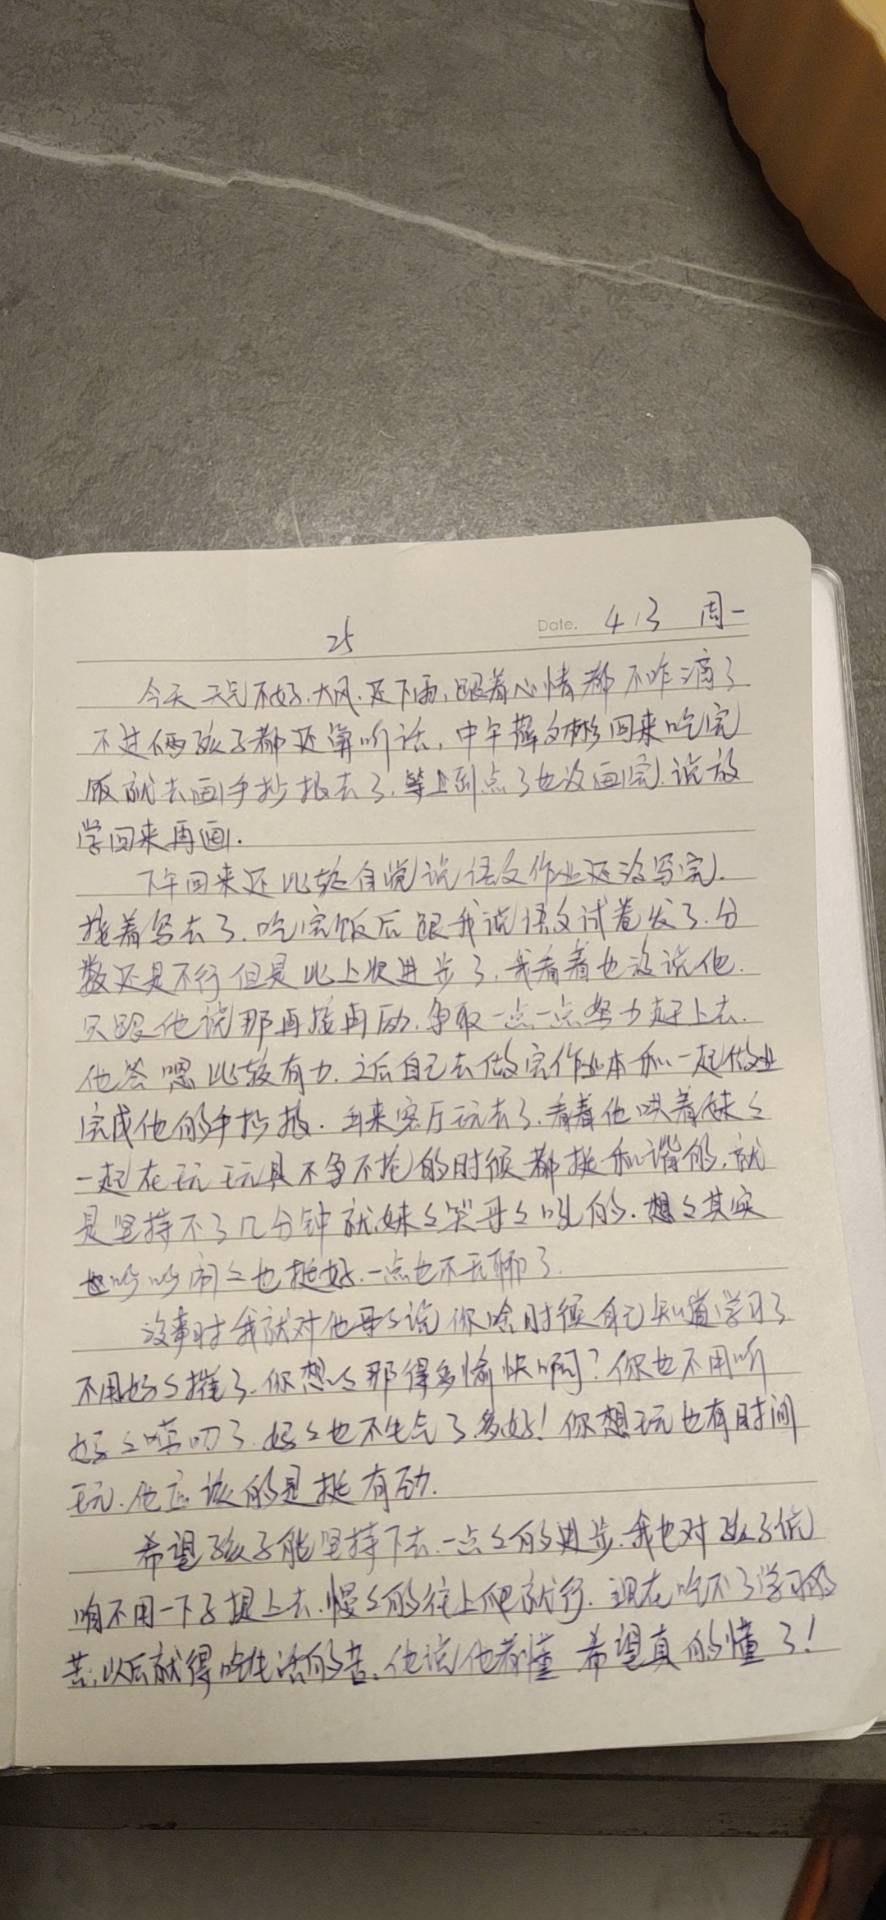 25
Date. 4.13 周一
今天天气不好.大风.还下雨,跟着心情都不咋滴了
不过俩孩子都还算听话,中午薛文彬回来吃完
饭就去画手抄报去了.等上到点了也没画完.说放
学回来再画.
下午回来还比较自觉说语文作业还没写完.
接着写去了.吃完饭后跟我说语文试卷发了.分
数还是不行但是比上次进步了,我看着也没说他.
只跟他说那再接再励.争取一点一点努力赶上去.
他答嗯比较有力.之后自己去做完作业本和一起作业
完成他的手抄报.出来客厅玩去了.看着他哄着妹々
一起在玩玩具不争不抢的时候都挺和谐的.就
是坚持不了几分钟就妹々哭哥々吼的.想々其实
吵吵闹々也挺好.一点也不无聊了.
没事时我就对他哥々说你啥时候自己知道学习了
不用妈々催了.你想々那得多愉快啊?你也不用听
妈々唠叨了.妈々也不生气了多好!你想玩也有时间
玩.他应该的是挺有动.
希望孩子能坚持下去.一点々的进步.我也对孩子说
咱不用一下子提上去.慢々的往上爬就行.现在吃不了学习的
苦,以后就得吃生活的苦.他说他都懂 希望真的懂了!